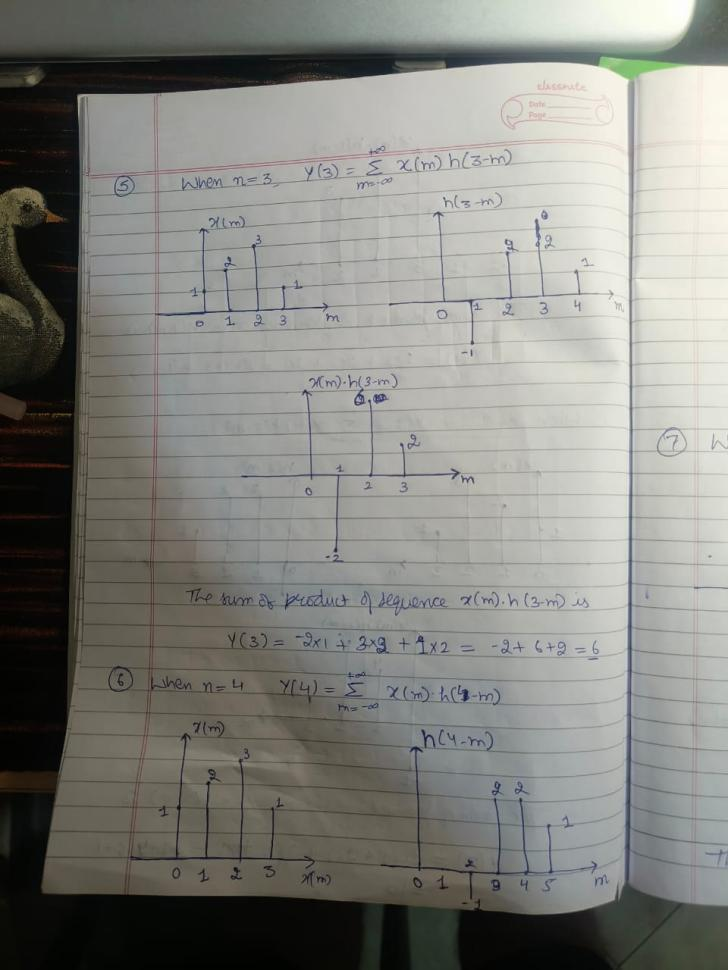 classmate
Date
Page
⑤ When n=3, Y(3) = Σ x(m) h(3-m)
+∞
m=-∞
x(m)
1 2 3 1
0 1 2 3 m
h(3-m)
2 2 1
0 1 2 3 4 m
-1
x(m)·h(3-m)
6 2
0 1 2 3 m
-2
The sum of product of sequence x(m)·h(3-m) is
Y(3) = -2×1 + 3×2 + 1×2 = -2+6+2 = 6
⑥ When n=4 Y(4) = Σ x(m)·h(4-m)
+∞
m=-∞
x(m)
1 2 3 1
0 1 2 3 x(m)
h(4-m)
2 2 1
0 1 2 3 4 5 m
-1
⑦ W